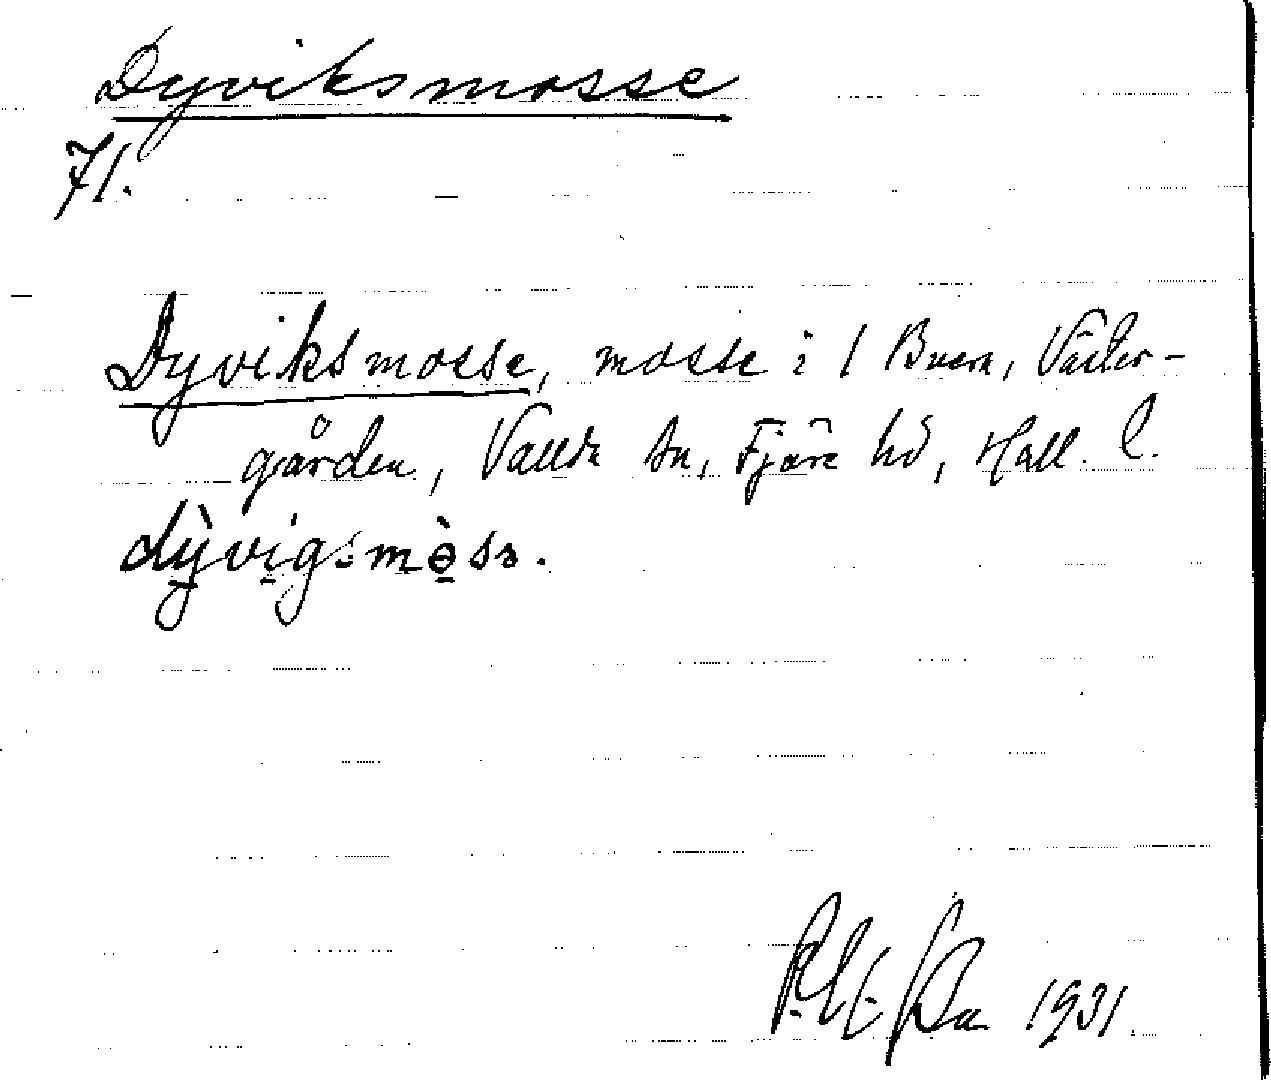 Dyviksmosse
71.
Dyviksmosse, mosse i 1 Buera, Väster-
gården, Vallda sn, Fjäre hd, Hall. l.
dỳvigsmòsə.
1931